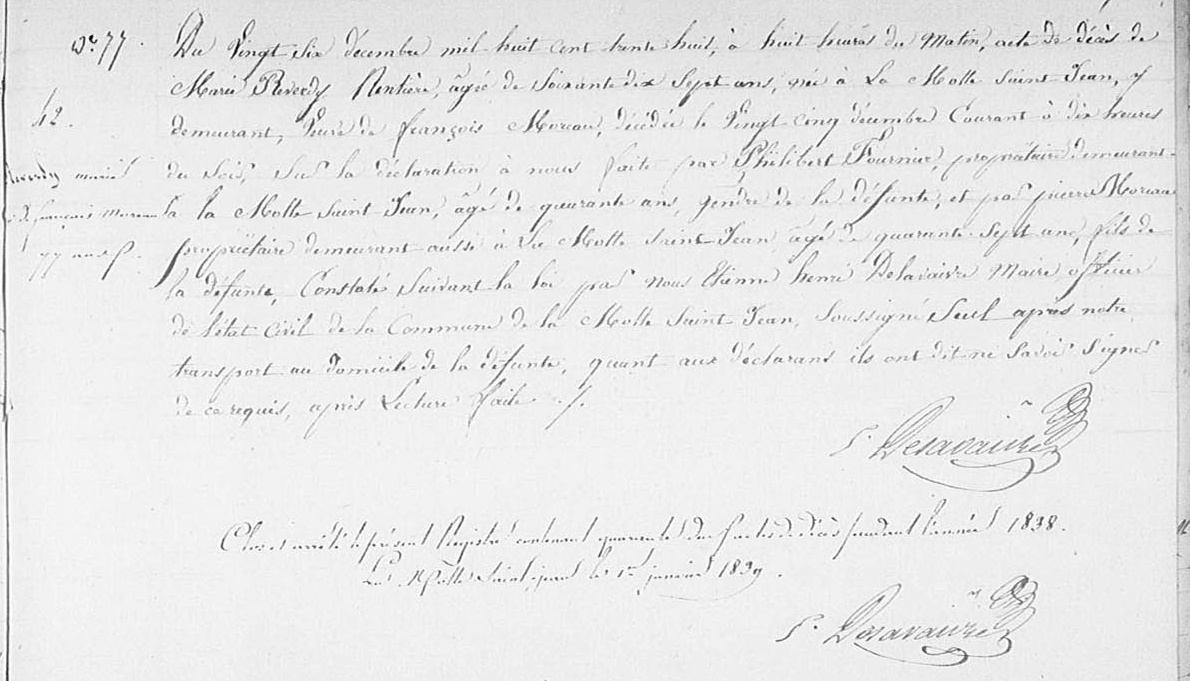 N.° 77.
42.
Reverdy marie
V.e de françois Moreau
77 ans
Du Vingt six décembre mil huit cent trente huit, à huit heures du Matin, acte de décès de
Marie Reverdy Rentière, âgée de Soixante dix Sept ans, née à La Motte Saint Jean, y
demeurant, Veuve de françois Moreau, décédée le Vingt cinq décembre Courant à dix heures
du Soir, Sur la déclaration à nous faite par Philibert Fournier, propriétaire demeurant
à la Motte Saint Jean, âgé de quarante ans, gendre de la défunte, et par pierre Moreau
propriétaire demeurant aussi à La Motte Saint Jean âgé de quarante Sept ans, fils de
la défunte, Constaté Suivant la loi par Nous Etienne henri Delavaivre Maire officier
de l'état Civil de la Commune de la Motte Saint Jean, Soussigné Seul après notre
transport au Domicile de la défunte, quant aux déclarans ils ont dit ne Savoir Signer
de ce requis, après Lecture faite ./.
Delavaivre
Clos et arrêté le présent Registre contenant quarante deux actes de décès pendant l'année 1838.
La Motte Saint jean le 1er janvier 1839.
Delavaivre